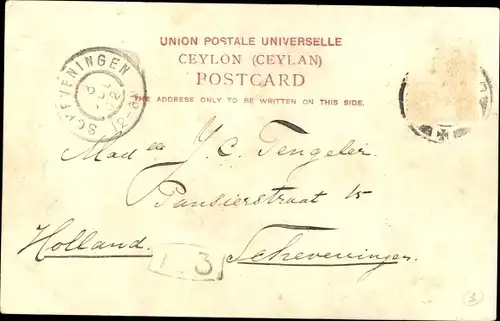 UNION POSTALE UNIVERSELLE
CEYLON (CEYLAN)
POSTCARD
THE ADDRESS ONLY TO BE WRITTEN ON THIS SIDE.
SCHEVENINGEN
Mad J. C. Tengeler
Pansierstraat 15
Holland. Scheveningen
3
3